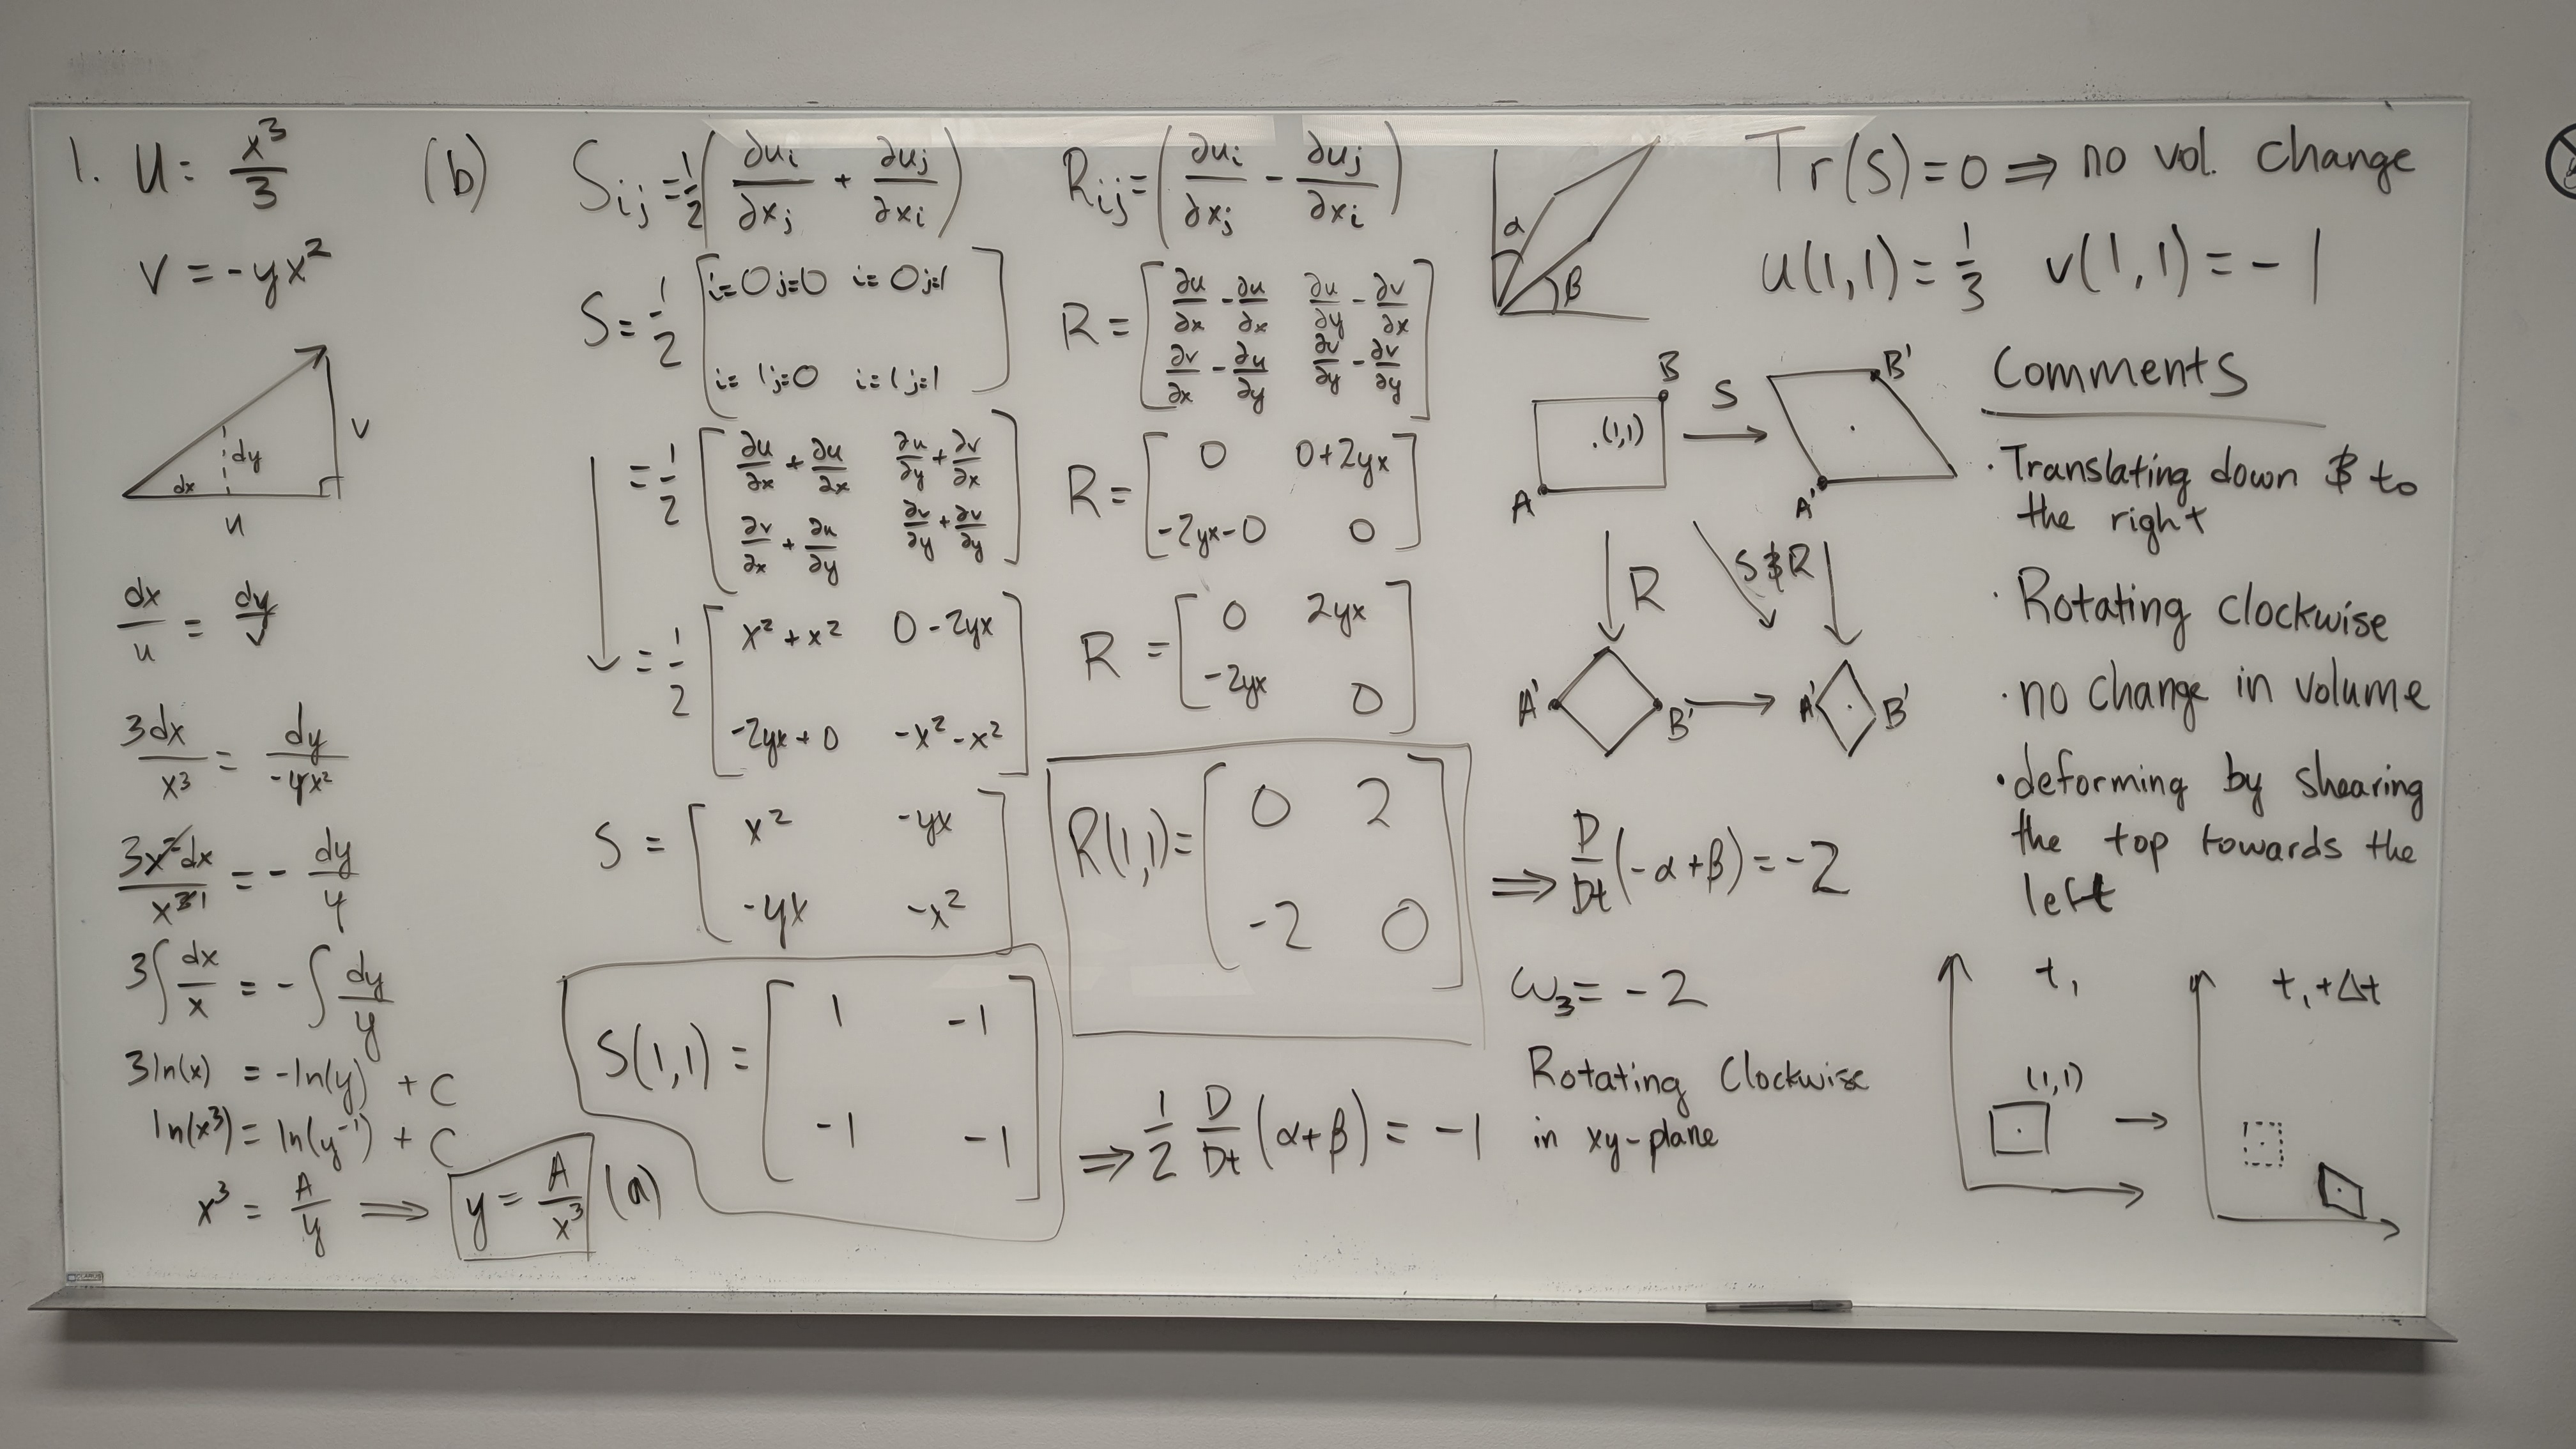 1. u = x³/3
v = -yx²
dy
v
dx
u
dx/u = dy/v
3dx/x³ = dy/-yx²
3x²dx/x³¹ = - dy/y
3∫dx/x = -∫dy/y
3ln(x) = -ln(y) + C
ln(x³) = ln(y⁻¹) + C
x³ = A/y ⟹ y = A/x³ (a)
(b)
Sij = 1/2(∂ui/∂xj + ∂uj/∂xi)
S = 1/2 [i=0j=0 i=0j=1
i=1j=0 i=1j=1]
= 1/2 [∂u/∂x + ∂u/∂x ∂u/∂y + ∂v/∂x
∂v/∂x + ∂u/∂y ∂v/∂y + ∂v/∂y]
= 1/2 [x² + x² 0 - 2yx
-2yx + 0 -x² - x²]
S = [x² -yx
-yx -x²]
S(1,1) = [1 -1
-1 -1]
⟹ 1/2 D/Dt(α+β) = -1
Rij = (∂ui/∂xj - ∂uj/∂xi)
R = [∂u/∂x - ∂u/∂x ∂u/∂y - ∂v/∂x
∂v/∂x - ∂u/∂y ∂v/∂y - ∂v/∂y]
R = [0 0+2yx
-2yx-0 0]
R = [0 2yx
-2yx 0]
R(1,1) = [0 2
-2 0]
⟹ D/Dt(-α+β) = -2
ω₃ = -2
Rotating Clockwise
in xy-plane
α
β
B
.(1,1)
A
S
B'
A'
R
S & R
A'
B'
A'
B'
Tr(S) = 0 ⟹ no vol. change
u(1,1) = 1/3 v(1,1) = -1
Comments
· Translating down & to
the right
· Rotating clockwise
· no change in volume
· deforming by shearing
the top towards the
left
t₁
(1,1)
t₁+Δt